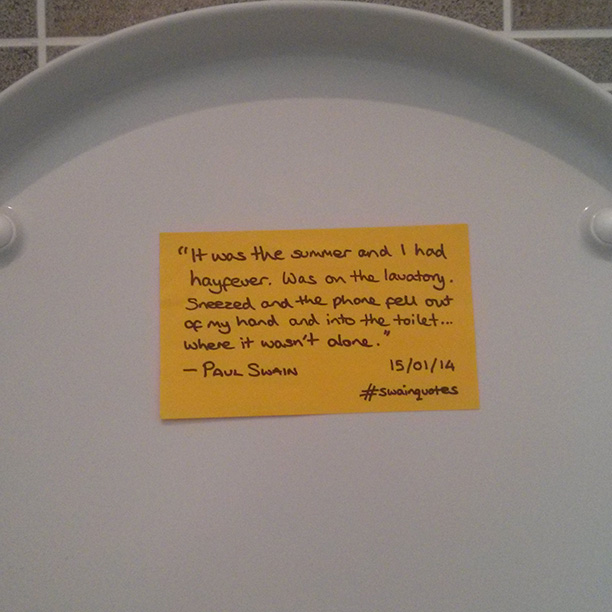 "It was the summer and I had
hayfever. Was on the lavatory.
Sneezed and the phone fell out
of my hand and into the toilet...
where it wasn't alone."
— PAUL SWAIN 15/01/14
#swainquotes